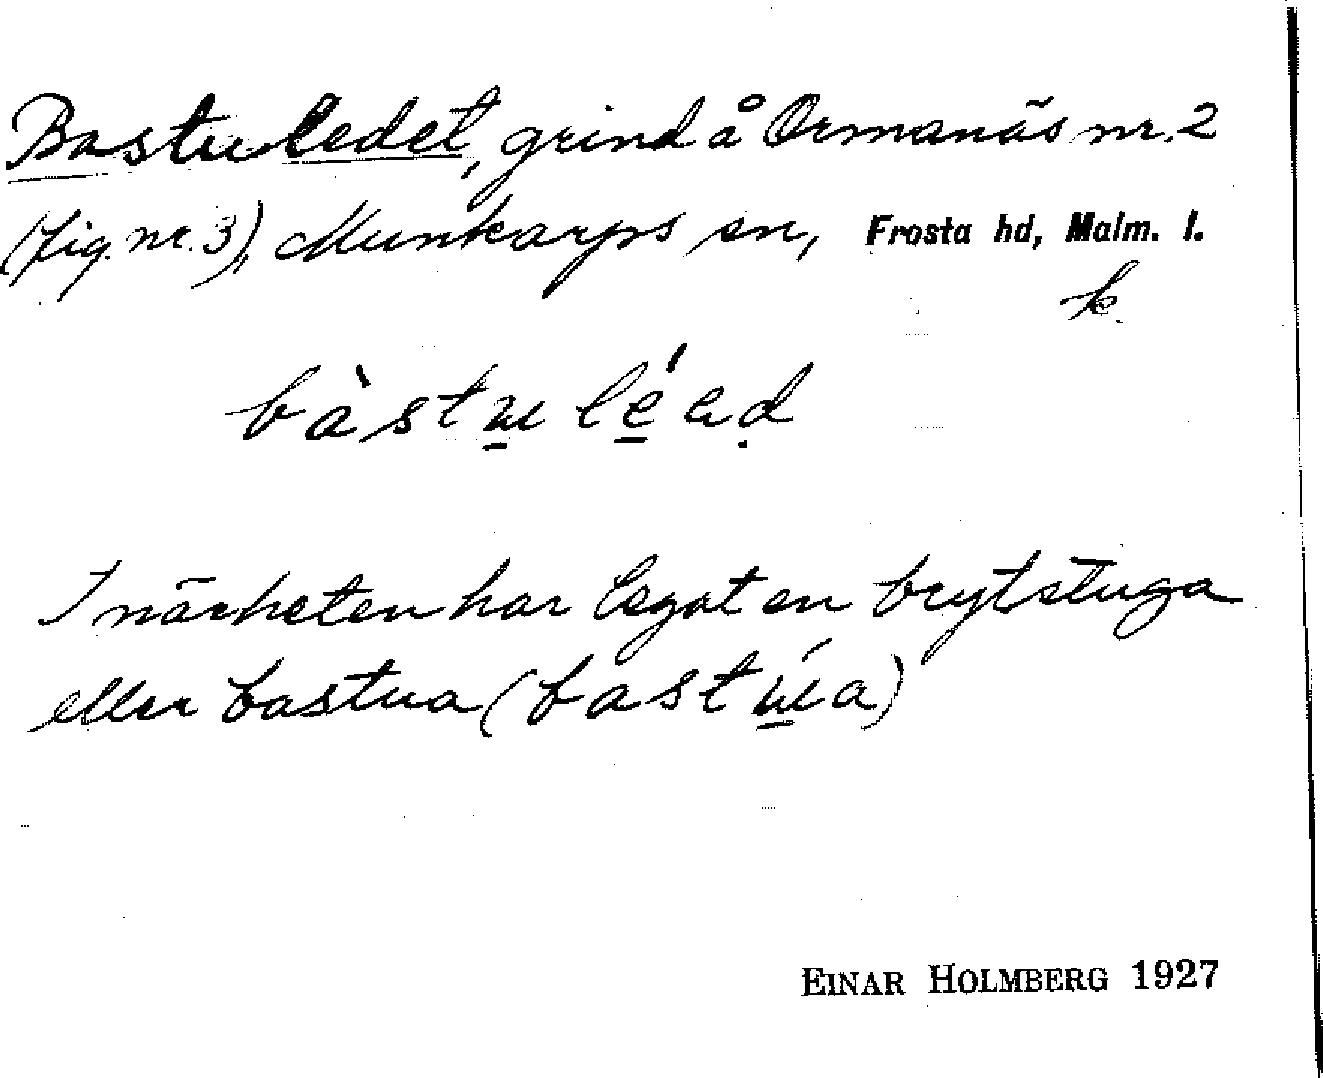 Bastuledet, grind å Ormanäs nr. 2
(fig. nr. 3), Munkarps sn, Frosta hd, Malm. l.
k.
bàstu̱ lé̱ad̤
I närheten har legat en brytstuga
eller bastua (bastú̱a)
EINAR HOLMBERG 1927